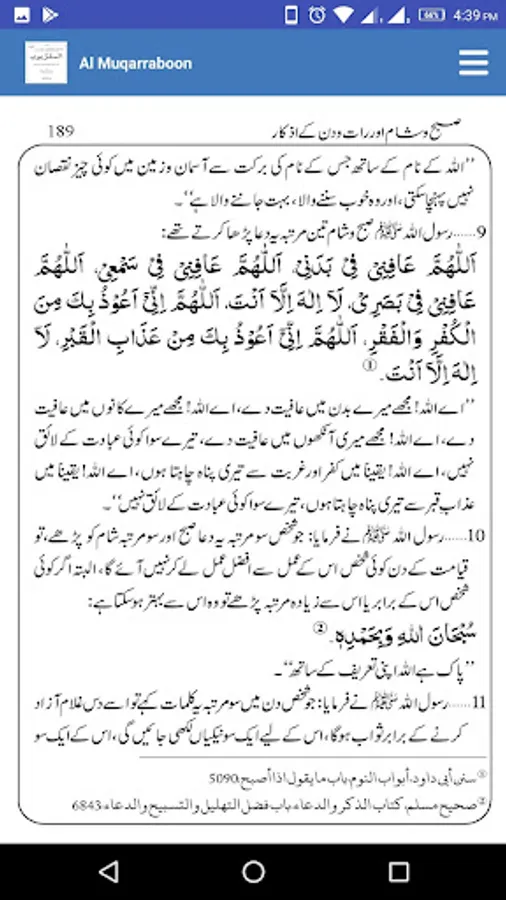 66% 4:39 PM
Al Muqarraboon
صبح و شام اور رات و دن کے اذکار 189
’’اللہ کے نام کے ساتھ جس کے نام کی برکت سے آسمان و زمین میں کوئی چیز نقصان
نہیں پہنچا سکتی، اور وہ خوب سننے والا، بہت جاننے والا ہے‘‘۔
9......رسول اللہ ﷺ صبح و شام تین مرتبہ یہ دعا پڑھا کرتے تھے:
اَللّٰهُمَّ عَافِنِيْ فِيْ بَدَنِيْ، اَللّٰهُمَّ عَافِنِيْ فِيْ سَمْعِيْ، اَللّٰهُمَّ
عَافِنِيْ فِيْ بَصَرِيْ، لَا اِلٰهَ اِلَّا اَنْتَ، اَللّٰهُمَّ اِنِّيْ اَعُوْذُ بِكَ مِنَ
الْكُفْرِ وَالْفَقْرِ، اَللّٰهُمَّ اِنِّيْ اَعُوْذُ بِكَ مِنْ عَذَابِ الْقَبْرِ، لَا
اِلٰهَ اِلَّا اَنْتَ.①
’’اے اللہ! مجھے میرے بدن میں عافیت دے، اے اللہ! مجھے میرے کانوں میں عافیت
دے، اے اللہ! مجھے میری آنکھوں میں عافیت دے، تیرے سوا کوئی عبادت کے لائق
نہیں، اے اللہ! یقیناً میں کفر اور غربت سے تیری پناہ چاہتا ہوں، اے اللہ! یقیناً میں
عذاب قبر سے تیری پناہ چاہتا ہوں، تیرے سوا کوئی عبادت کے لائق نہیں‘‘۔
10......رسول اللہ ﷺ نے فرمایا: جو شخص سو مرتبہ یہ دعا صبح اور سو مرتبہ شام کو پڑھے، تو
قیامت کے دن کوئی شخص اس کے عمل سے افضل عمل لے کر نہیں آئے گا، البتہ اگر کوئی
شخص اس کے برابر یا اس سے زیادہ مرتبہ پڑھے تو وہ اس سے بہتر ہو سکتا ہے:
سُبْحَانَ اللهِ وَبِحَمْدِهٖ.②
’’پاک ہے اللہ اپنی تعریف کے ساتھ‘‘۔
11......رسول اللہ ﷺ نے فرمایا: جو شخص دن میں سو مرتبہ یہ کلمات کہے تو اسے دس غلام آزاد
کرنے کے برابر ثواب ہوگا، اس کے لیے ایک سو نیکیاں لکھی جائیں گی، اس کے ایک سو
①سنن أبی داود، أبواب النوم، باب ما يقول اذا أصبح، 5090
②صحیح مسلم، کتاب الذکر والدعاء، باب فضل التهليل والتسبيح والدعاء، 6843